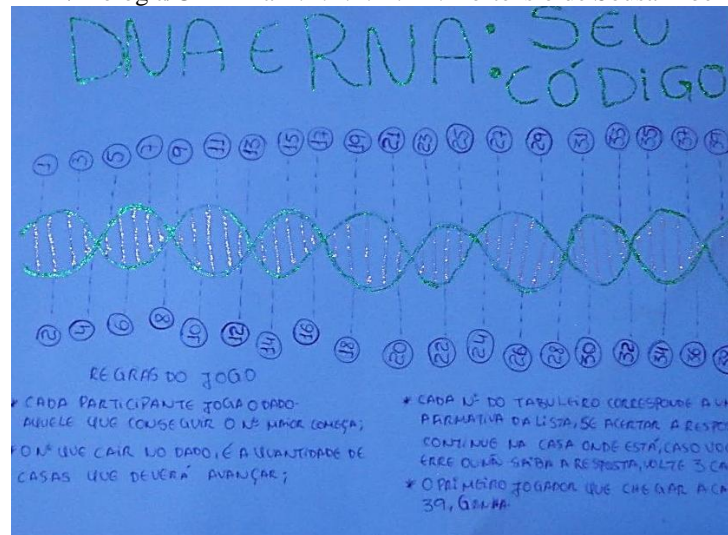 DNA E RNA: SEU
CÓDIGO
1 3 5 7 9 11 13 15 17 19 21 23 25 27 29 31 33 35 37 39
2 4 6 8 10 12 14 16 18 20 22 24 26 28 30 32 34 36
REGRAS DO JOGO
* CADA PARTICIPANTE JOGA O DADO.
AQUELE QUE CONSEGUIR O Nº MAIOR COMEÇA;
* O Nº QUE CAIR NO DADO, É A QUANTIDADE DE
CASAS QUE DEVERÁ AVANÇAR;
* CADA Nº DO TABULEIRO CORRESPONDE A
AFIRMATIVA DA LISTA, SE ACERTAR A
CONTINUE NA CASA ONDE ESTÁ, CASO
ERRE OU NÃO SAIBA A RESPOSTA, VOLTE 3
* O PRIMEIRO JOGADOR QUE CHEGAR A
39, GANHA.